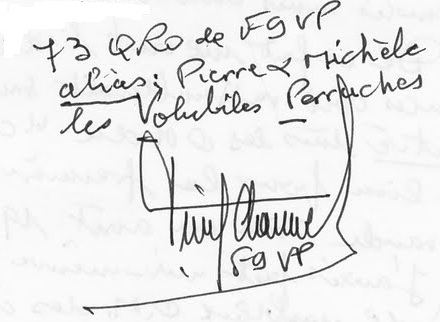 73 QRO de F9VP
alias; Pierre & Michèle
les Volubiles Perruches
F9VP